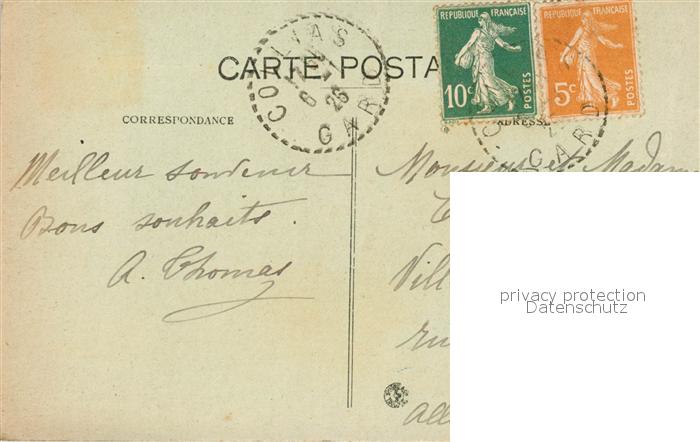 CARTE POSTA
COLLIAS
26
GARD
REPUBLIQUE FRANÇAISE
10c
POSTES
REPUBLIQUE FRANÇAISE
5c
POSTES
GARD
CORRESPONDANCE
ADRESSE
Meilleur souvenir
Bons souhaits.
A. Thomas
Monsieur et Madame
Vill
ru
privacy protection
Datenschutz